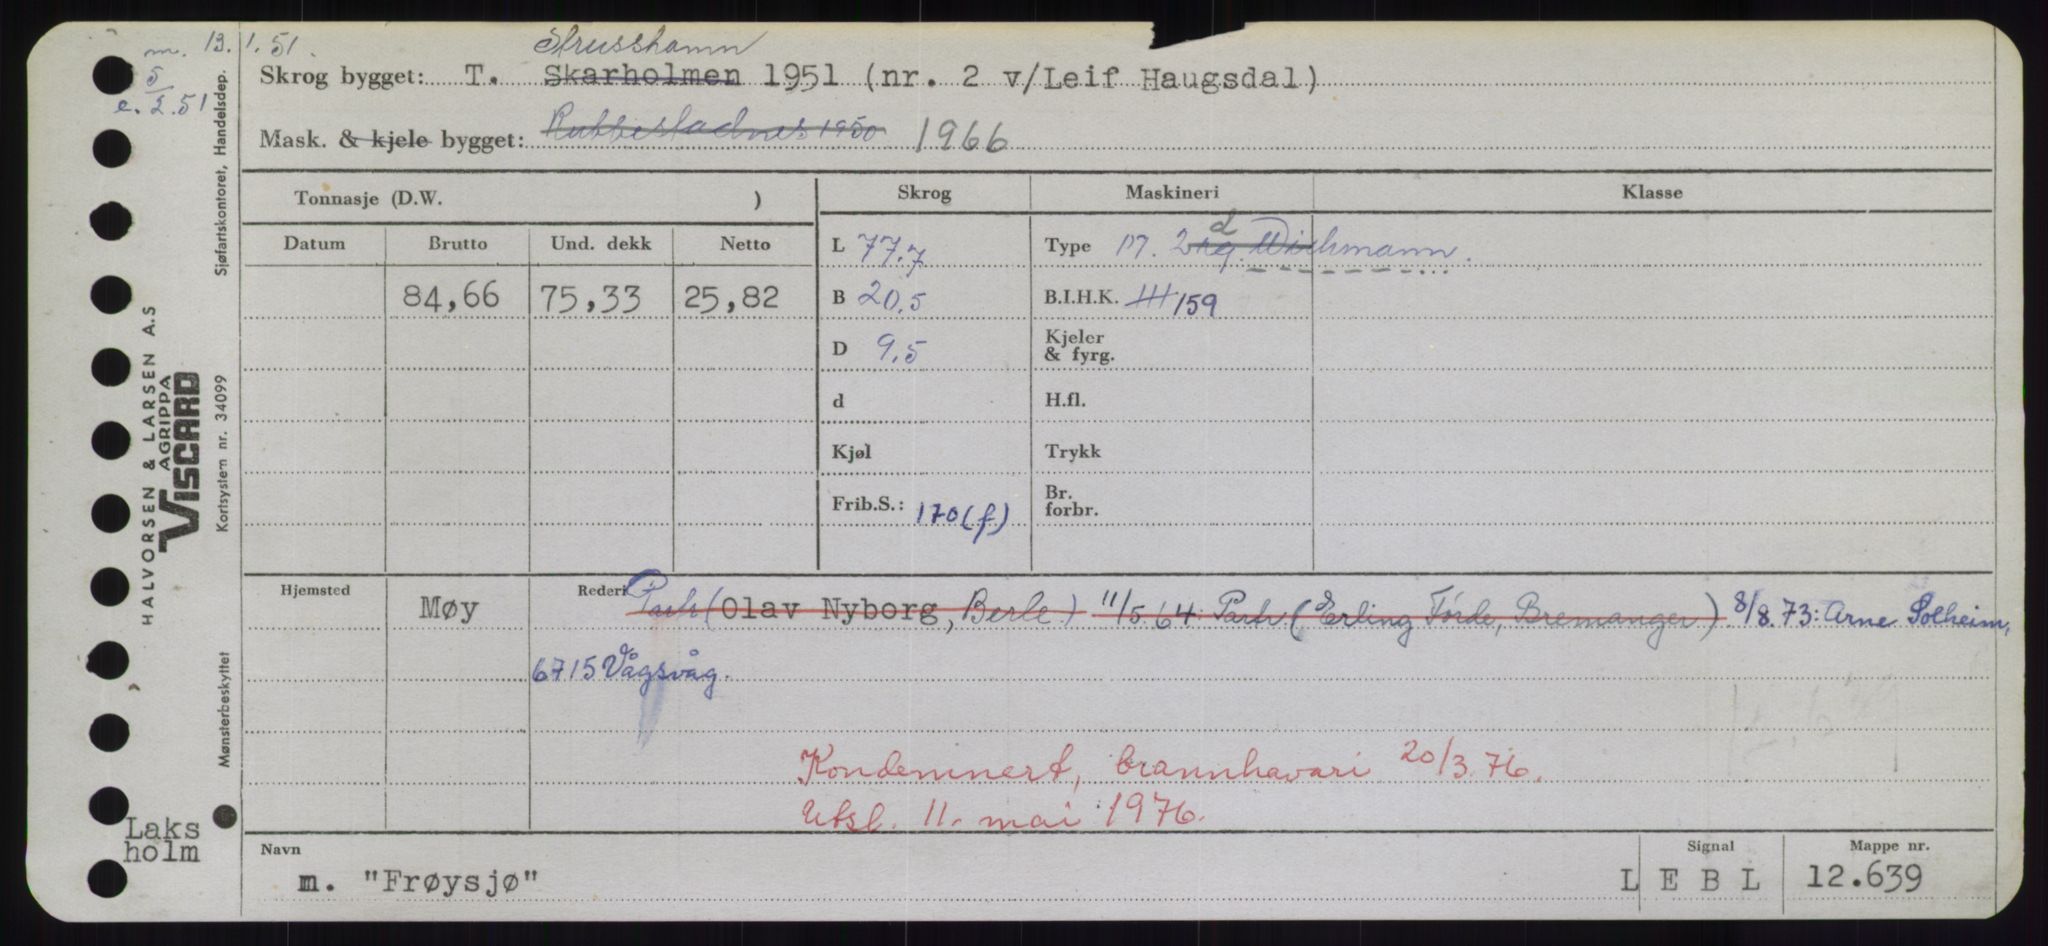 m. 13.1.51.
5/
e. 2.51
Strusshamn
Skrog bygget: T. Skarholmen 1951 (nr. 2 v/Leif Haugsdal)
Mask. & kjele bygget: Rubbestadnes 1950 1966
Tonnasje (D.W. )
Skrog Maskineri Klasse
Datum Brutto Und. dekk Netto
84,66 75,33 25,82
L 77.7
B 20.5
D 9.5
d
Kjøl
Frib.S.: 170 (f)
d
Type M. Wichmann.
B.I.H.K. 159
Kjeler
& fyrg.
H.fl.
Trykk
Br.
forbr.
Hjemsted Møy
Rederi Partr (Olav Nyborg, Berle) 11/5.64: Partr (Erling Førde, Bremanger) 8/8.73: Arne Solheim,
6715 Vågsvåg.
Kondemnert, brannhavari 20/3.76.
Utsl. 11. mai 1976.
Navn Signal Mappe nr.
m. "Frøysjø" L E B L 12.639
Laks
holm
HALVORSEN & LARSEN A.S
AGRIPPA
VISCARD
Mønsterbeskyttet Kortsystem nr. 34099 Sjøfartskontoret, Handelsdep.